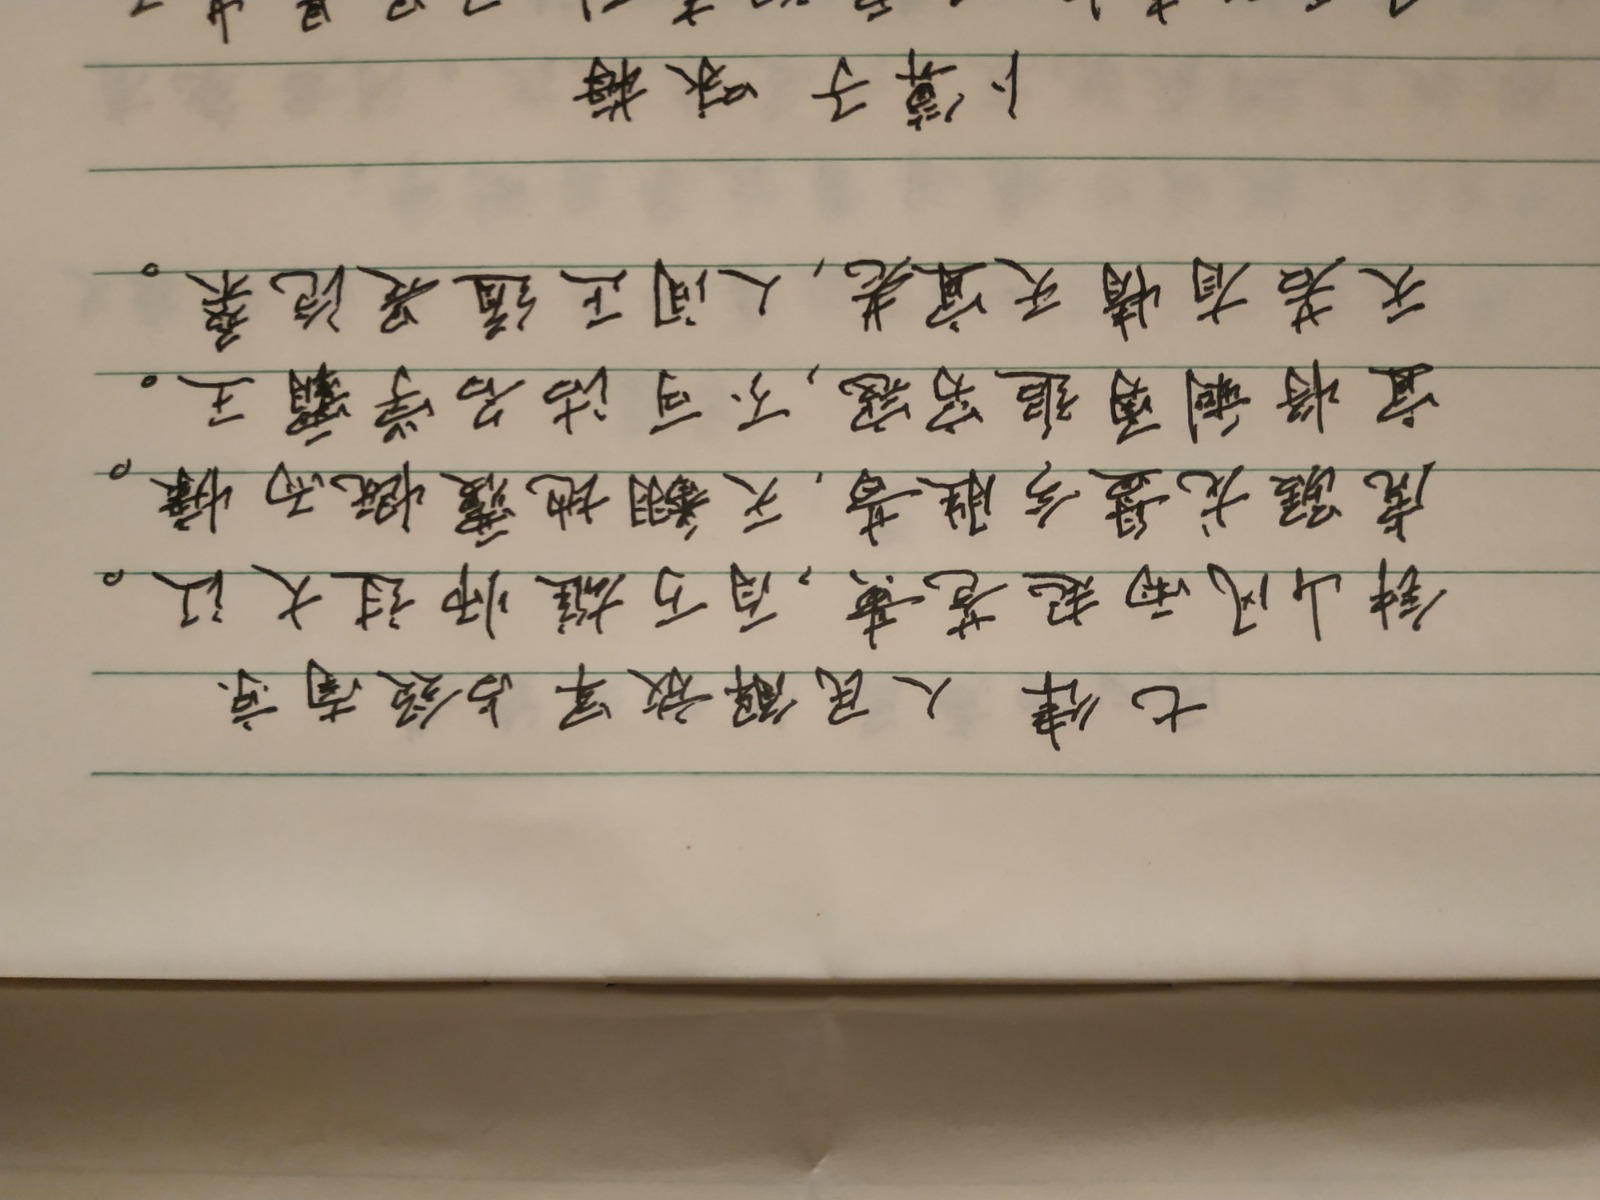 七律 人民解放军占领南京
钟山风雨起苍黄,百万雄师过大江。
虎踞龙盘今胜昔,天翻地覆慨而慷。
宜将剩勇追穷寇,不可沽名学霸王。
天若有情天宜老,人间正道是沧桑。
卜算子 咏梅